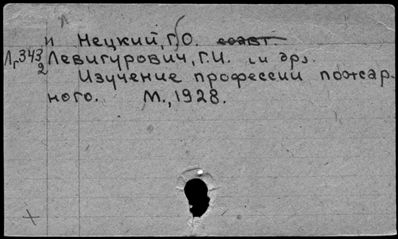 и Нецкий, Г.О. соавт.
Лг343
2
Левигурович, Г.И. [и др].
Изучение профессии пожар-
ного. М., 1928.